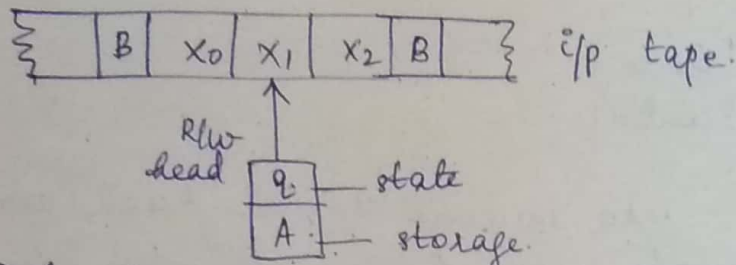 B X0 X1 X2 B i/p tape.
R/W
head
q — state
A — storage.